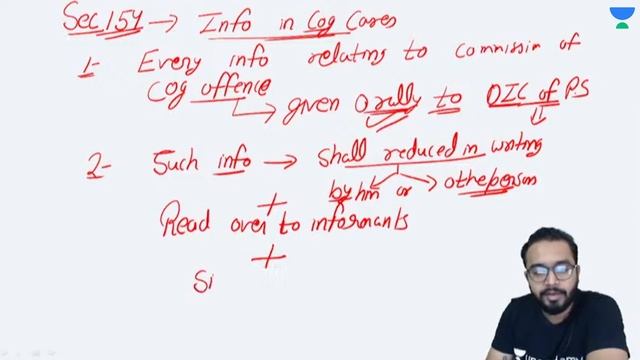 Sec 154 → Info in Cog Cases
1- Every info relating to commissin of
Cog offence
given Orally to OIC of P.S
2- Such info → Shall reduced in writing
by him or otheperson
+
Read over to informants
+
Si